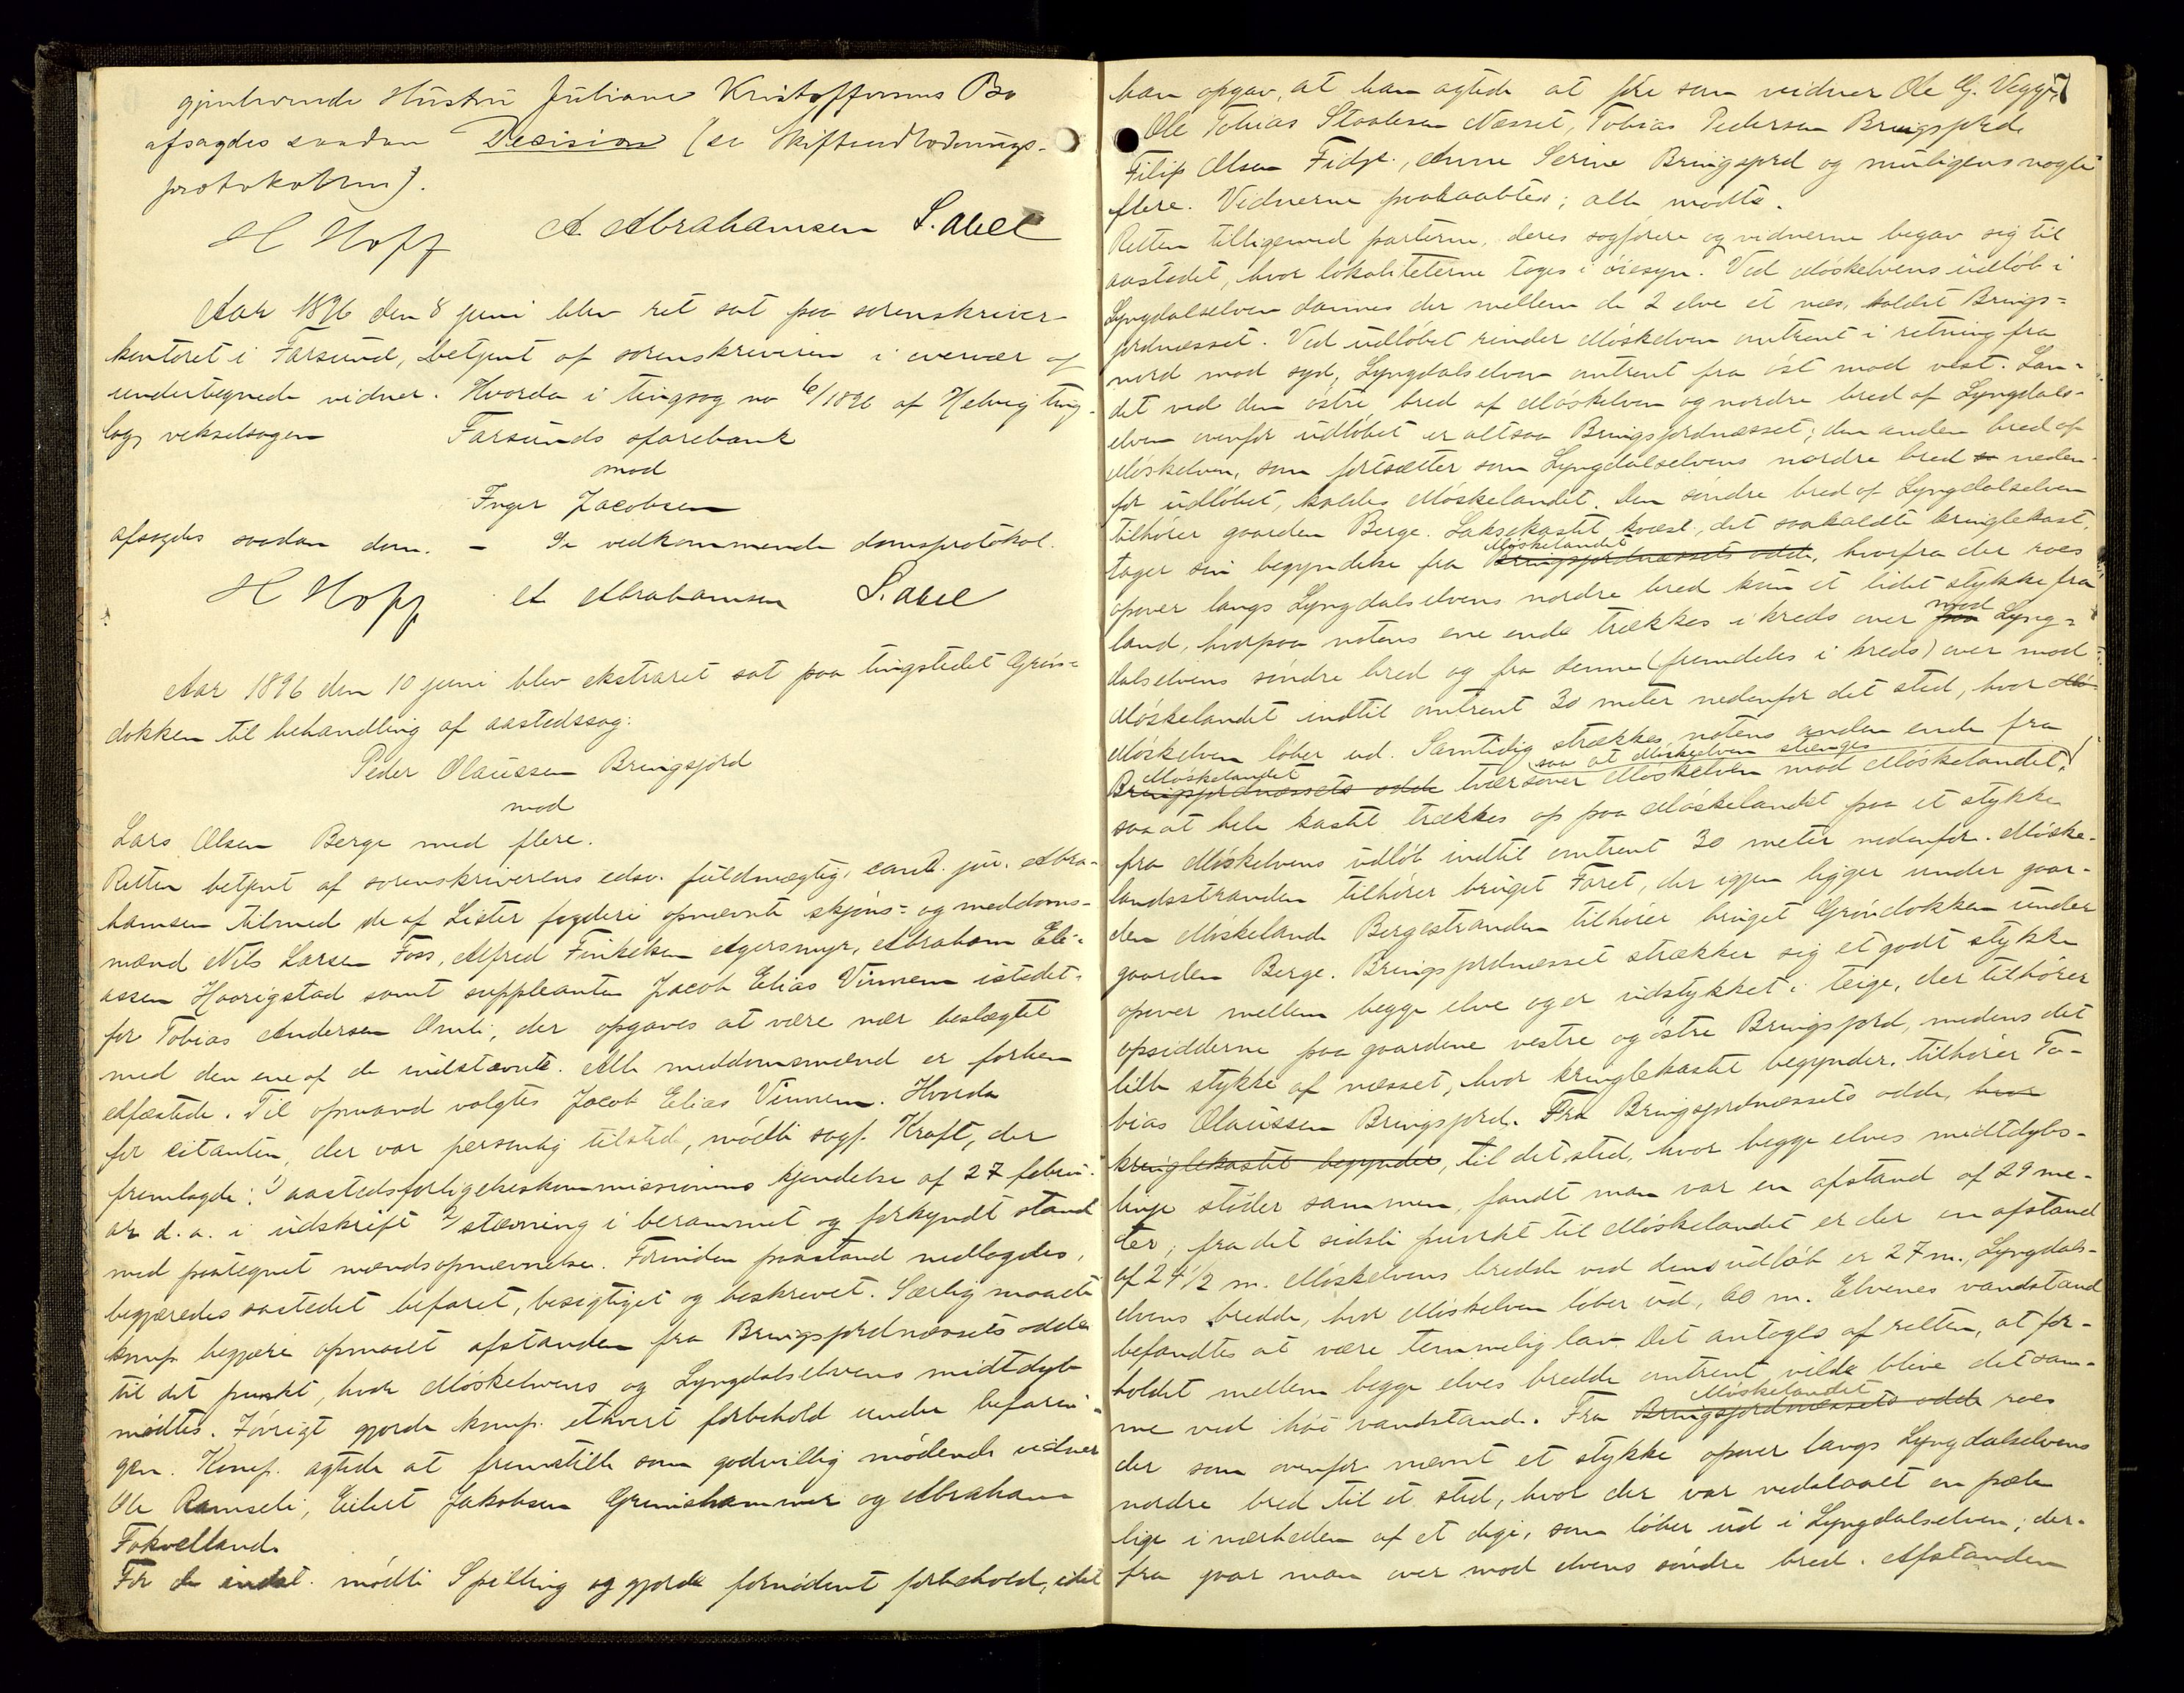 gjenlevende Hustru Juliane Kristoffersens Bo
afsagdes saadan Decision (se Skifteudlodnings-
protokollen).
H Hoff A. Abrahamsen S. Abel
Aar 1896 den 8 juni blev ret sat paa sorenskriver-
kontoret i Farsund, betjent af sorenskriveren i overvær af
undertegnede vidner. Hvorda i tingsag no 6/1896 af Helvig ting-
lag, vekselsagen Farsunds sparebank
mod
Inger Jacobsen
afsagdes saadan dom. - Se vedkommende domsprotokol.
H Hoff A Abrahamsen S. Abel
Aar 1896 den 10 juni blev ekstraret sat paa tingstedet Grøn-
dokken til behandling af aastedssag:
Peder Olaussen Bringsjord
mod
Lars Olsen Berge med flere.
Retten betjent af sorenskriverens edsv. fuldmægtig, cand. jur. Abra-
hamsen tilmed de af Lister fogderi opnævnte skjøns- og meddoms-
mænd Nils Larsen Foss, Alfred Finkelsen Agersmyr, Abraham Eli-
assen Haarigstad samt suppleanten Jacob Elias Vinnem istedet-
for Tobias Andersen Omli, der opgaves at være nær beslægtet
med den ene af de indstævnte. Alle meddomsmænd er forhen
edfæstede. Til opmand valgtes Jacob Elias Vinnem. Hvorda
for citanten, der var personlig tilstede, mødte sagf. Kraft, der
fremlagde: 1) aastedsforligelseskommissionens kjendelse af 27 febru-
ar d. a. i udskrift 2) stævning i berammet og forkyndt stand
med paategnet mændsopnævnelse. Forinden paastand nedlagdes,
begjæredes aastedet befaret, besigtiget og beskrevet. Særlig maatte
komp. begjære opmaalt afstanden fra Bringsjordnæssets odde
til det punkt, hvor Møskelvens og Lyngdalselvens midtdyb
mødtes. Iøvrigt gjorde komp. ethvert forbehold under befarin-
gen. Komp. agtede at fremstille som godvillig mødende vidner
Ole Ramseli, Eilert Jakobsen Grimshammer og Abraham
Fokvelland.
For de indst. mødte Spilling og gjorde fornødent forbehold, idet
7
han opgav, at han agtede at føre som vidner Ole G. Vegge,
Ole Tobias Staalesen Næsset, Tobias Pedersen Bringsjord,
Filip Olsen Fidje, Anne Serine Bringsjord og muligens nogle
flere. Vidnerne paaraabtes; alle mødte.
Retten tilligemed parterne, deres sagførere og vidnerne begav sig til
aastedet, hvor lokaliteterne toges i øiesyn. Ved Møskelvens udløb i
Lyngdalselven dannes der mellem de 2 elve et næs, kaldet Brings-
jordnæsset. Ved udløbet rinder Møskelven omtrent i retning fra
nord mod syd, Lyngdalselven omtrent fra øst mod vest. Lan-
det ved den østre bred af Møskelven og nordre bred af Lyngdals-
elven ovenfor udløbet er altsaa Bringsjordnæsset; den anden bred af
Møskelven, som fortsætter som Lyngdalselvens nordre bred neden-
for udløbet, kaldes Møskelandet. Den søndre bred af Lyngdalselven
tilhører gaarden Berge. Laksekastet kvæst., det saakaldte kringlekast,
tager sin begyndelse fra Møskelandet Bringsjordnæssets odde, hvorfra der roes
opover langs Lyngdalselvens nordre bred kun et lidet stykke fra
land, hvorpaa notens ene ende trækkes i kreds over mod Lyng-
dalselvens søndre bred og fra denne (fremdeles i kreds) over mod
Møskelandet indtil omtrent 30 meter nedenfor det sted, hvor
Møskelven løber ud. Samtidig strækkes notens anden ende fra
Møskelandet Bringsjordnæssets odde tværsover Møskelven saa at Møskelven stænges mod Møskelandet,
saa at hele kastet trækkes op paa Møskelandet paa et stykke
fra Møskelvens udløb indtil omtrent 30 meter nedenfor. Møske-
landsstranden tilhører bruget Faret, der igjen ligger under gaar-
den Møskeland. Bergestranden tilhører bruget Grøndokken under
gaarden Berge. Bringsjordnæsset strækker sig et godt stykke
opover mellem begge elve og er udstykket i teige, der tilhører
opsidderne paa gaardene vestre og østre Bringsjord, medens det
lille stykke af næsset, hvor kringlekastet begynder, tilhører To-
bias Olaussen Bringsjord. Fra Bringsjordnæssets odde, hvor
kringlekastet begynder, til det sted, hvor begge elves midtdybs-
linje støder sammen, fandt man var en afstand af 29 me-
ter; fra det sidste punkt til Møskelandet er der en afstand
af 24 1/2 m. Møskelvens bredde ved dens udløb er 27 m., Lyngdals-
elvens bredde, hvor Møskelven løber ud, 60 m. Elvenes vandstand
befandtes at være temmelig lav. Det antoges af retten, at for-
holdet mellem begge elves bredde omtrent vilde blive det sam-
me ved høi vandstand. Fra Møskelandet Bringsjordnæssets odde roes
der som ovenfor nævnt et stykke opover langs Lyngdalselvens
nordre bred til et sted, hvor der var nedslaaet en pæle
lige i nærheden af et dige, som løber ud i Lyngdalselven; der-
fra gaar man over mod elvens søndre bred. Afstanden